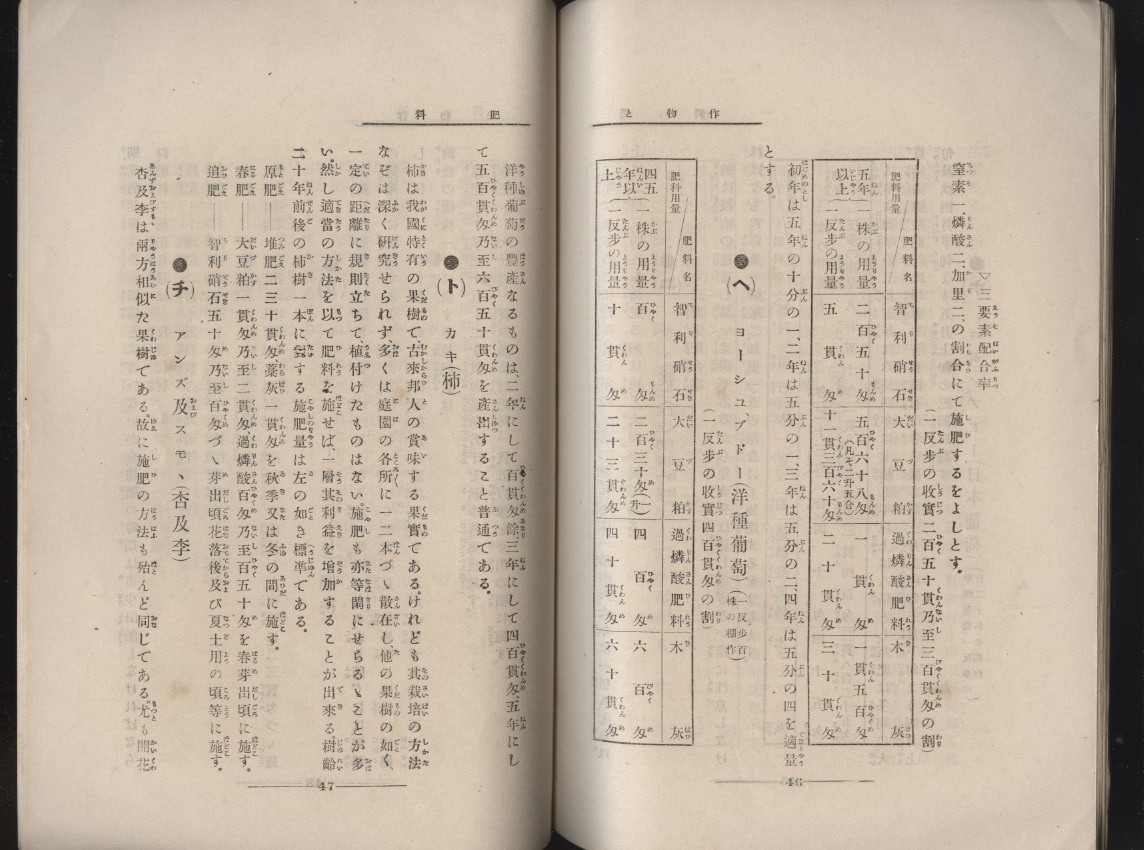 作物と
▽三要素配合率
窒素一、燐酸二、加里二、の割合にて施肥するをよしとす。
(一反步の收實二百五十貫乃至三百貫匁の割)
肥料用量 肥料名 智利硝石 大豆粕 過燐酸肥料 木灰
五年以上 一株の用量 二百五十匁 五百六十八匁(凡そ二升五合) 一貫匁 一貫五百匁
一反步の用量 五貫匁 十一貫三百六十匁 二十貫匁 三十貫匁
●(ヘ) ヨーシュ、ブドー(洋種葡萄)(一反步百株の棚作)
(一反步の收實四百貫匁の割)
肥料用量 肥料名 智利硝石 大豆粕 過燐酸肥料 木灰
四五年以上 一株の用量 百匁 二百三十匁(一升) 四百匁 六百匁
一反步の用量 十貫匁 二十三貫匁 四十貫匁 六十貫匁
初年は五年の十分の一、二年は五分の一三年は五分の二四年は五分の四を適量
とする。
46
肥料
洋種葡萄の豐產なるものは、二年にして百貫匁餘三年にして四百貫匁、五年にし
て五百貫匁乃至六百五十貫匁を產出すること普通である。
●(ト) カキ(柿)
柿は我國特有の果樹で、古來邦人の賞味する果實てある。けれども其栽培の方法
なぞは深く研究せられず、多くは庭園の各所に一二本づゝ散在し他の果樹の如く、
一定の距離に規則立ちて、植付けたものはない。施肥も亦等閑にせらるゝことが多
い。然し適當の方法を以て肥料を施せば、一層其利益を增加することが出來る。樹齡
二十年前後の柿樹一本に對する施肥量は左の如き標準である。
原肥――堆肥二三十貫匁、藁灰一貫匁を秋季又は冬の間に施す。
春肥――大豆粕一貫匁乃至二貫匁、過燐酸百匁乃至百五十匁を春芽出頃に施す。
追肥――智利硝石五十匁乃至百匁づゝ芽出頃花落後及び夏土用の頃等に施す。
●(チ) アンズ及スモヽ(杏及李)
杏及李は兩方相似た果樹である。故に施肥の方法も殆んど同じてある。尤も開花
47